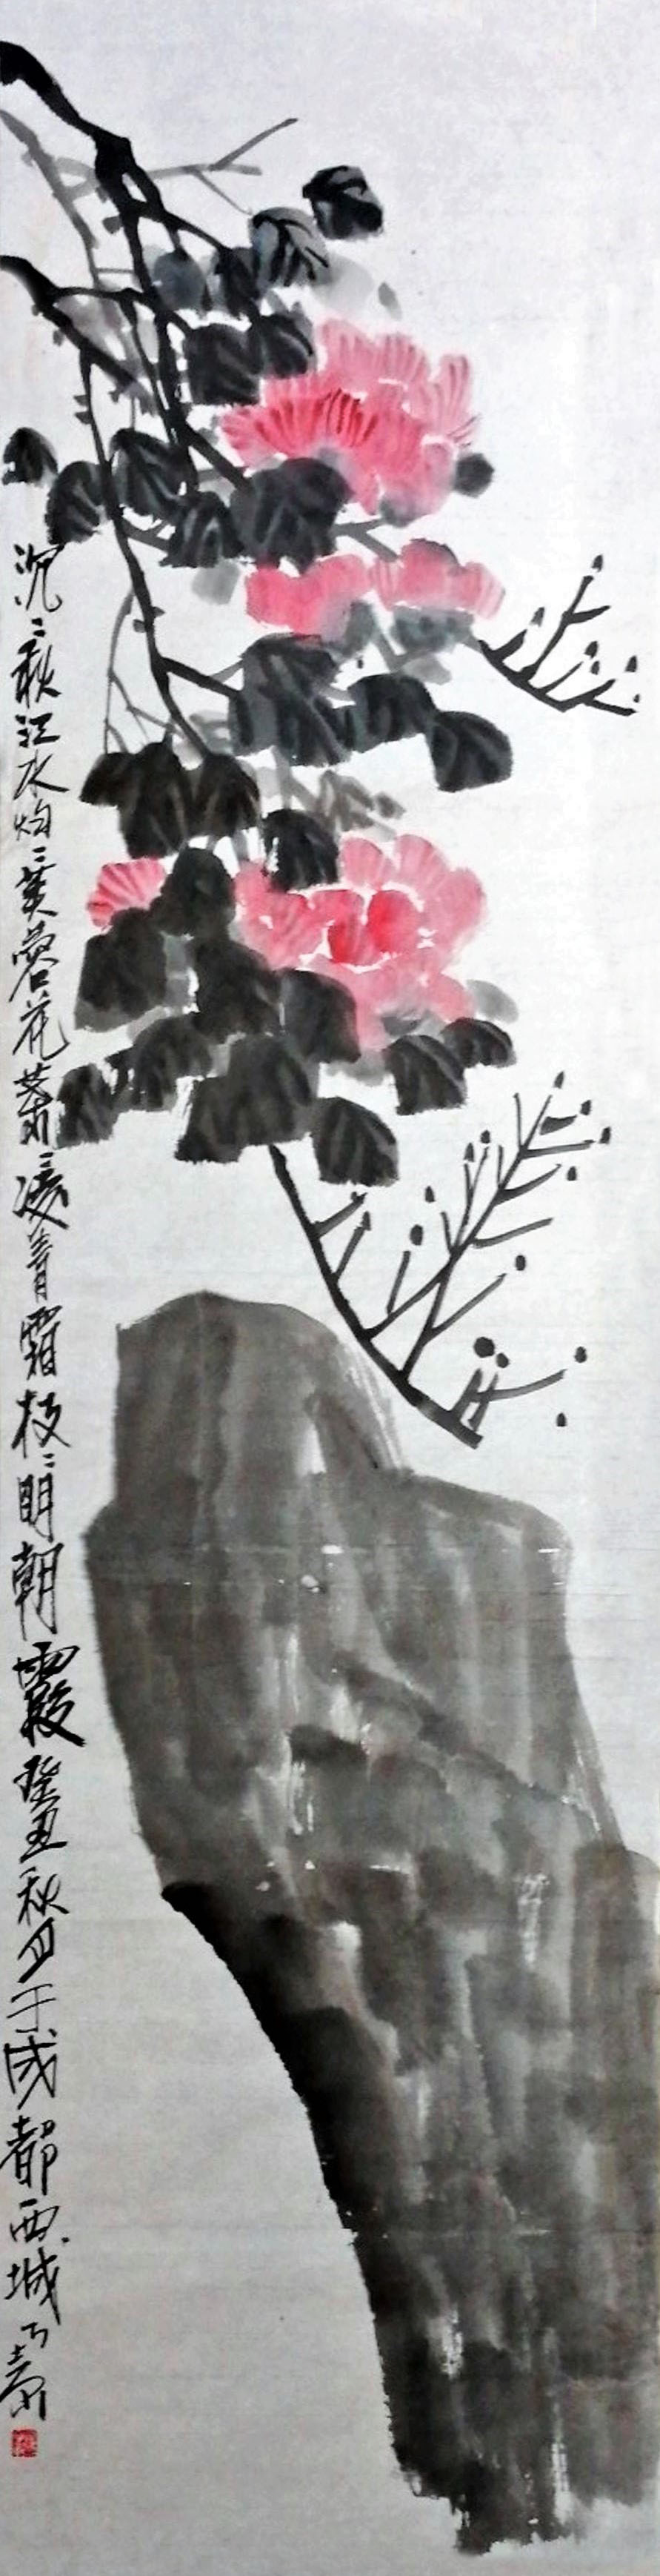 沉〻秋江水灼〻芙蓉花萧〻凌青霜枝〻明朝霞癸丑秋月于成都西城